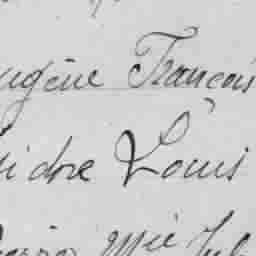 ugène François
idore Louis
Mie